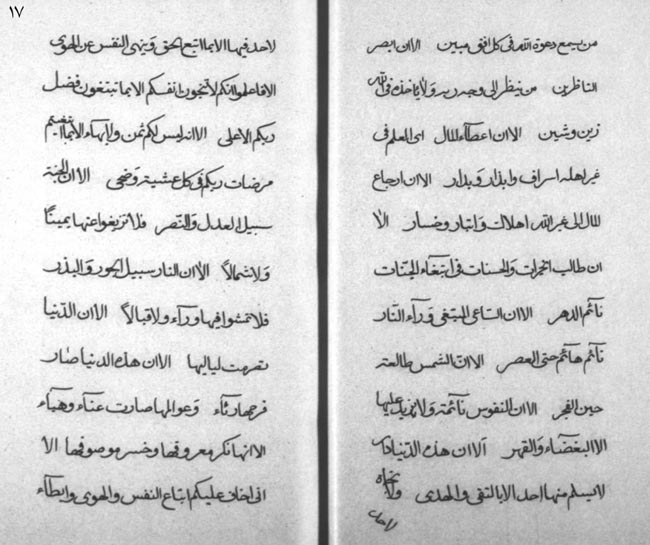 ١٧
من يسمع دعوة الله فى كل افق مبين الا ان ابصر
الناظرين من ينظر الى وجه ربه ولا ياخذه فى الله
زين وشين الا ان اعطآء المال اى المعلم فى
غير اهله اسراف وابذار وبدار الا ان ارجاع
المال الى غير الله اهلاك واتبار وخسار الا
ان طالب الخيرات والحسنات فى ابتغاء الجنات
نآئم الدهر الا ان الساعى المبتغى ورآء النار
نآئم هآئم حتى العصر الا ان الشمس طالعته
حين الفجر الا ان النفوس نآئمته ولا يزيد عليها
الا البغضآء والقهر الا ان هذه الدنيا دار
لا يسلم منها احد الا بالتقى والهدى ولا نجاة
لاحد
لاحد فيها الا بما اتبع الحق وينهى النفس عن الهوى
الا فاعلموا انكم لا تنجون انفسكم الا بما تبتغون فضل
ربكم الاعلى الا انه ليس لكم ثمن ولا بهاء الا بما
مرضات ربكم فى كل عشية وضحى الا ان الجنة
سبيل العدل والنصر فلا تزيغوا عنها يمينًا
ولا شمالاً الا ان النار سبيل الجور والبذر
فلا تمشوا فيها ورآء ولا قبالاً الا ان الدنيا
تصرمت لياليها الا ان هذه الدنيا صار
فرحها رثآء وعوالمها صارت عنآء وهبآء
الا انها نكر معروفها وخسر موصوفها الا
انى اخاف عليكم اتباع النفس والهوى وابطآء